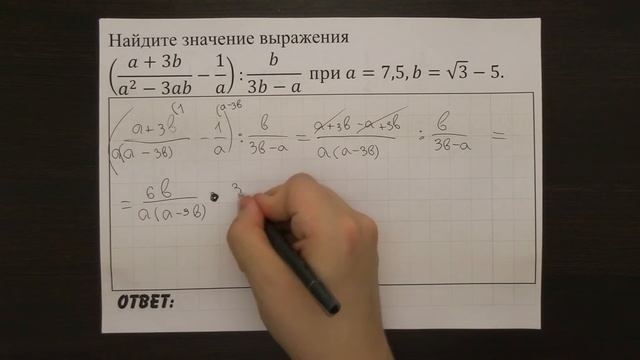 Найдите значение выражения
(a + 3b / a² − 3ab − 1/a) : b / 3b − a при a = 7,5, b = √3 − 5.
(a+3b (1 / a(a−3b) − 1 (a−3b / a) : b / 3b−a = a+3b −a+3b / a(a−3b) : b / 3b−a =
= 6b / a(a−3b) · 3
ОТВЕТ: